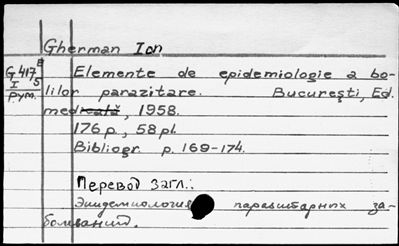 Gherman Ion
G417E Elemente de epidemiologie a bo-
I 5
рум. lilor parazitare. Bucureşti, Ed.
medicală, 1958.
176 p., 58 pl.
Bibliogr. p. 169-174.
Перевод загл.:
Эпидемиология паразитарных за-
болеваний.